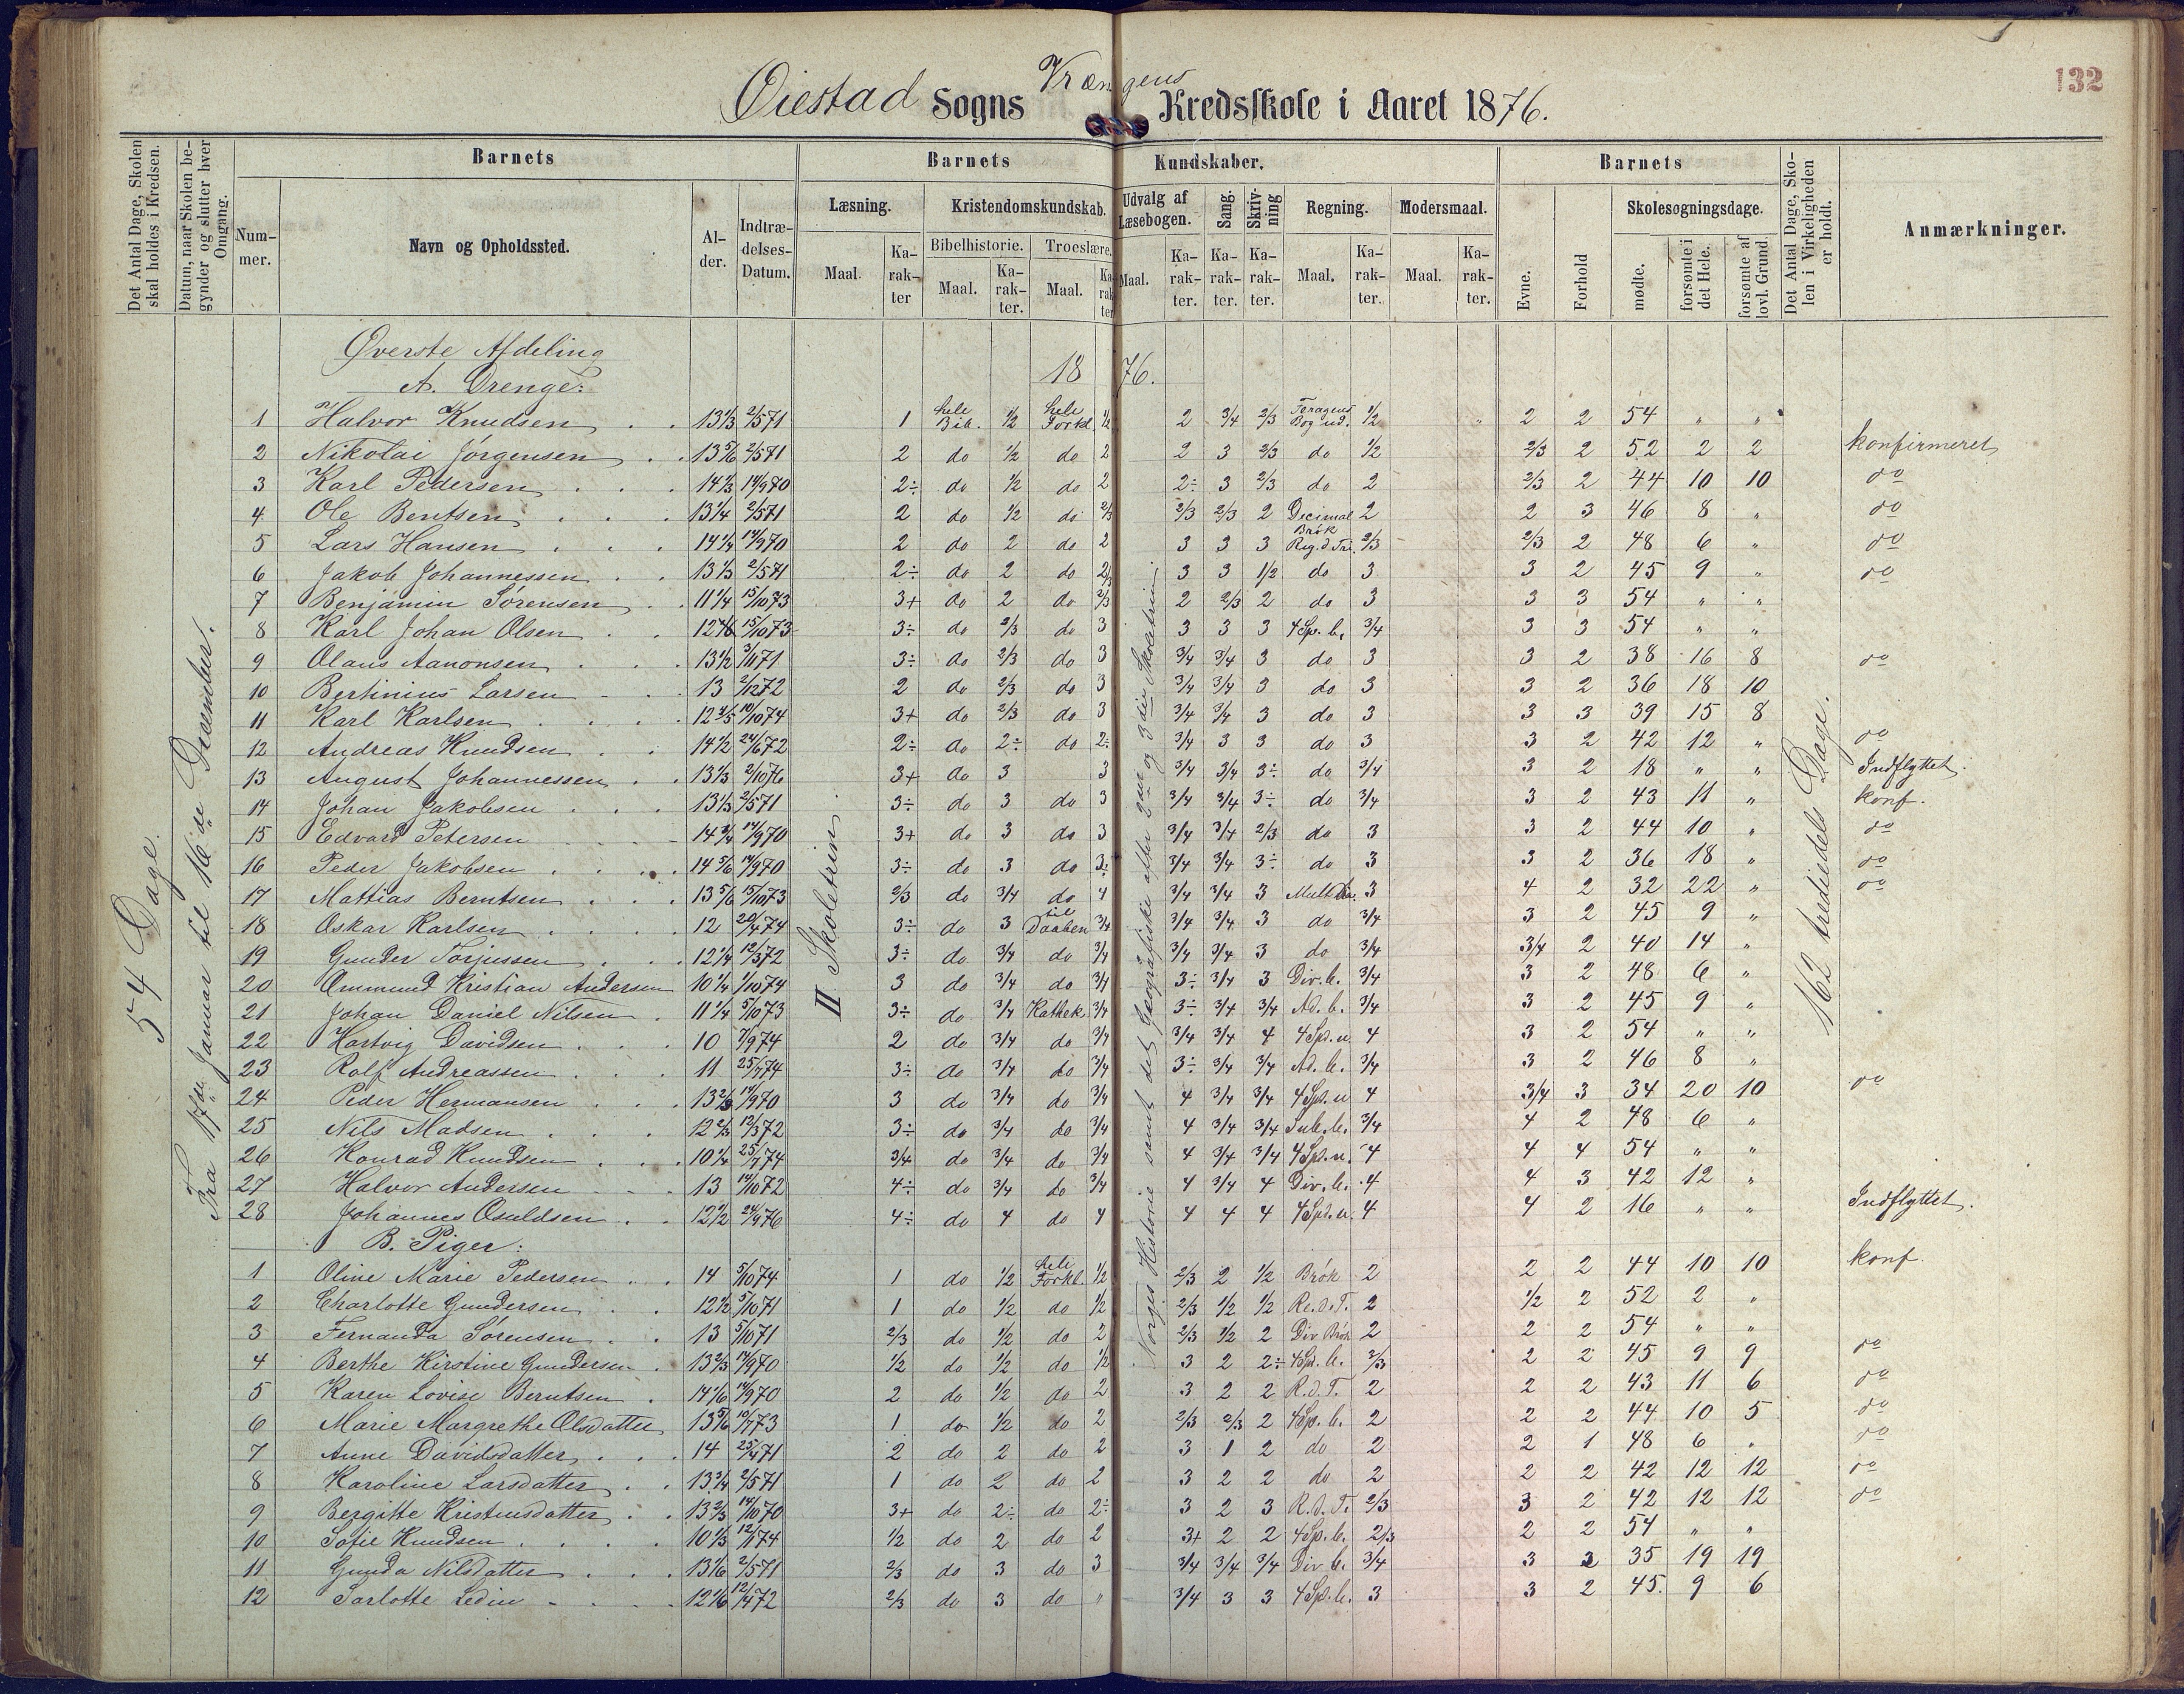 132
Øiestad Sogns Vrængens Kredsskole i Aaret 1876.
Det Antal Dage, Skolen skal holdes i Kredsen.
Datum, naar Skolen begynder og slutter hver Omgang.
Barnets
Barnets Kundskaber.
Barnets
Det Antal Dage, Skolen i Virkeligheden er holdt.
Anmærkninger.
Nummer.
Navn og Opholdssted.
Alder.
Indtrædelses-Datum.
Læsning.
Kristendomskundskab.
Udvalg af Læsebogen.
Sang.
Skrivning
Regning.
Modersmaal.
Evne.
Forhold
Skolesøgningsdage.
Bibelhistorie.
Troeslære.
Maal.
Karakter
Maal.
Karakter.
Maal.
Karakter
Maal.
Karakter.
Karakter.
Karakter.
Maal.
Karakter.
Maal.
Karakter.
mødte.
forsømte i det Hele.
forsømte af lovl. Grund.
54 Dage.
Fra 17de Januar til 16de December.
II Skoletrin
Norges Historie samt det Geografiske efter 2det og 3die Skoletrin.
162 trediedels Dage.
Øverste Afdeling
1876.
A. Drenge:
1 Halvor Knudsen 13 1/3 2/5 71 1 hele Bib. 1/2 hele Forkl. 1/2 2 3/4 2/3 1/2 2 2 54 " "
2 Nikolai Jörgensen 13 5/6 2/5 71 2 do 1/2 do 2 2 3 2/3 do 1/2 2/3 2 52 2 2 konfirmeret
3 Karl Pedersen 14 1/3 14/9 70 2÷ do 1/2 do 2 2÷ 3 2/3 do 2 2/3 2 44 10 10 do
4 Ole Bentsen 13 1/4 2/5 71 2 do 1/2 do 2/3 2/3 2/3 2 Decimal Brök 2 2 3 46 8 " do
5 Lars Hansen 14 1/4 14/9 70 2 do 2 do 2 3 3 3 Reg. d. Tri. 2/3 2/3 2 48 6 " do
6 Jakob Johannessen 13 1/3 2/5 71 2÷ do 2 do 2/3 3 3 1/2 do 3 3 2 45 9 " do
7 Benjamin Sörensen 11 1/4 15/10 73 3+ do 2 do 2/3 2 2/3 2 do 3 3 3 54 " "
8 Karl Johan Olsen 15/10 73 3÷ do 2/3 do 3 3 3 3 4 Sp. b. 3/4 3 3 54 " "
9 Olaus Aanonsen 13 1/2 3/11 71 3÷ do 2/3 do 3 3/4 3/4 3 do 3 3 2 38 16 8 do
10 Bertinius Larsen 13 2/12 72 2 do 2/3 do 3 3/4 3/4 3 do 3 3 2 36 18 10
11 Karl Karlsen 12 4/5 10/10 74 3+ do 2/3 do 3 3/4 3/4 3 do 3 3 3 39 15 8
12 Andreas Knudsen 14 1/2 24/6 72 2÷ do 2÷ do 2÷ 3/4 3 3 do 3 3 2 42 12 " do
13 August Johannessen 13 1/3 2/10 76 3+ do 3 3 3/4 3/4 3÷ do 3/4 3 2 18 " " Indflyttet.
14 Johan Jakobsen 13 1/3 2/5 71 3÷ do 3 do 3 3/4 3/4 3÷ do 3/4 3 2 43 11 " konf.
15 Edvard Petersen 14 3/4 14/9 70 3+ do 3 do 3 3/4 3/4 2/3 do 3 3 2 44 10 " do
16 Peder Jakobsen 14 5/6 14/9 70 3÷ do 3 do 3÷ 3/4 3/4 3÷ do 3 3 2 36 18 " do
17 Mattias Berntsen 13 5/6 15/10 73 2/3 do 3/4 do 4 3/4 3/4 3 3 4 2 32 22 " do
18 Oskar Karlsen 12 20/4 74 3÷ do 3 til Daaben 3/4 3/4 3/4 3 do 3/4 3 2 45 9 "
19 Gunder Torjussen 12 1/4 12/3 72 3÷ do 3/4 do 3/4 3/4 3/4 3 do 3/4 3/4 2 40 14 "
20 Ommund Kristian Andersen 10 1/4 1/10 74 3 do 3/4 do 3/4 3÷ 3/4 3 Div. b. 3/4 3 2 48 6 "
21 Johan Daniel Nilsen 11 1/4 5/10 73 3÷ do 3/4 Kathek. 3/4 3÷ 3/4 3/4 Ad. b. 3/4 3 2 45 9 "
22 Hartvig Davidsen 10 7/9 74 2 do 3/4 do 3/4 3/4 3/4 4 4 Sp. u. 4 3 2 54 " "
23 Rolf Andreassen 11 25/7 74 3÷ do 3/4 do 3/4 3÷ 3/4 3/4 Ad. b. 3/4 3 2 46 8 "
24 Peder Hermansen 13 2/3 14/9 70 3 do 3/4 do 3/4 4 3/4 3/4 4 Sp. u 4 3/4 3 34 20 10 do
25 Nils Madsen 12 2/3 12/3 72 3÷ do 3/4 do 3/4 4 3/4 3/4 Sub. b. 3/4 4 2 48 6 "
26 Konrad Knudsen 10 1/4 25/7 74 3/4 do 3/4 do 3/4 4 3/4 3/4 4 Sp. u. 4 4 4 54 " "
27 Halvor Andersen 13 14/10 72 4÷ do 3/4 do 3/4 4 3/4 4 Div. b. 4 4 3 42 12 "
28 Johannes Osuldsen 12 1/2 24/9 76 4÷ do 4 do 4 4 4 4 4 Sp. u. 4 4 2 16 " " Indflyttet.
B. Piger:
1 Oline Marie Pedersen 14 5/10 74 1 do 1/2 hele Forkl. 1/2 2/3 2 1/2 Brök 2 2 2 44 10 10 konf
2 Charlotte Gundersen 12 1/2 5/10 71 1 do 1/2 do 1/2 2/3 1/2 1/2 Re. d. T. 2 1/2 2 52 2 "
3 Fernanda Sörensen 13 5/10 71 2/3 do 1/2 do 2 2/3 1/2 2 Div Brök 2 2 2 54 " "
4 Berthe Kirstine Gundersen 13 2/3 14/9 70 1/2 do 1/2 do 1/2 3 2 2÷ 4 Sp. b. 2/3 2 2 45 9 9 do
5 Karen Lovise Berntsen 14 1/6 14/9 70 2 do 1/2 do 2 3 2 2 R. d. T. 2 2 2 43 11 6 do
6 Marie Margrethe Olsdatter 13 5/6 10/7 73 1 do 1/2 do 2 2/3 2/3 2 4 Sp. b. 2 2 2 44 10 5 do
7 Anne Davidsdatter 14 25/4 71 2 do 2 do 2 3 1 2 do 2 2 1 48 6 " do
8 Karoline Larsdatter 13 3/4 2/5 71 1 do 2 do 2 3 2 2 do 2 2 2 42 12 12 do
9 Bergitte Kristensdatter 13 2/3 14/10 70 3+ do 2÷ do 2÷ 3 2 3 R. d. T. 2/3 3 2 42 12 12 do
10 Sofie Knudsen 10 1/3 12/1 74 1/2 do 2 do 2 3+ 2 2 4 Sp. b. 2/3 2 2 54 " "
11 Gunda Nilsdatter 13 1/6 2/5 71 2/3 do 3 do 3 3/4 3/4 3/4 Div b. 3/4 3 35 19 19
12 Sarlotte Ledin 12 1/6 12/4 72 2/3 do 3 do " 3/4 3 3 4 Sp. b. 3 3 2 45 9 6